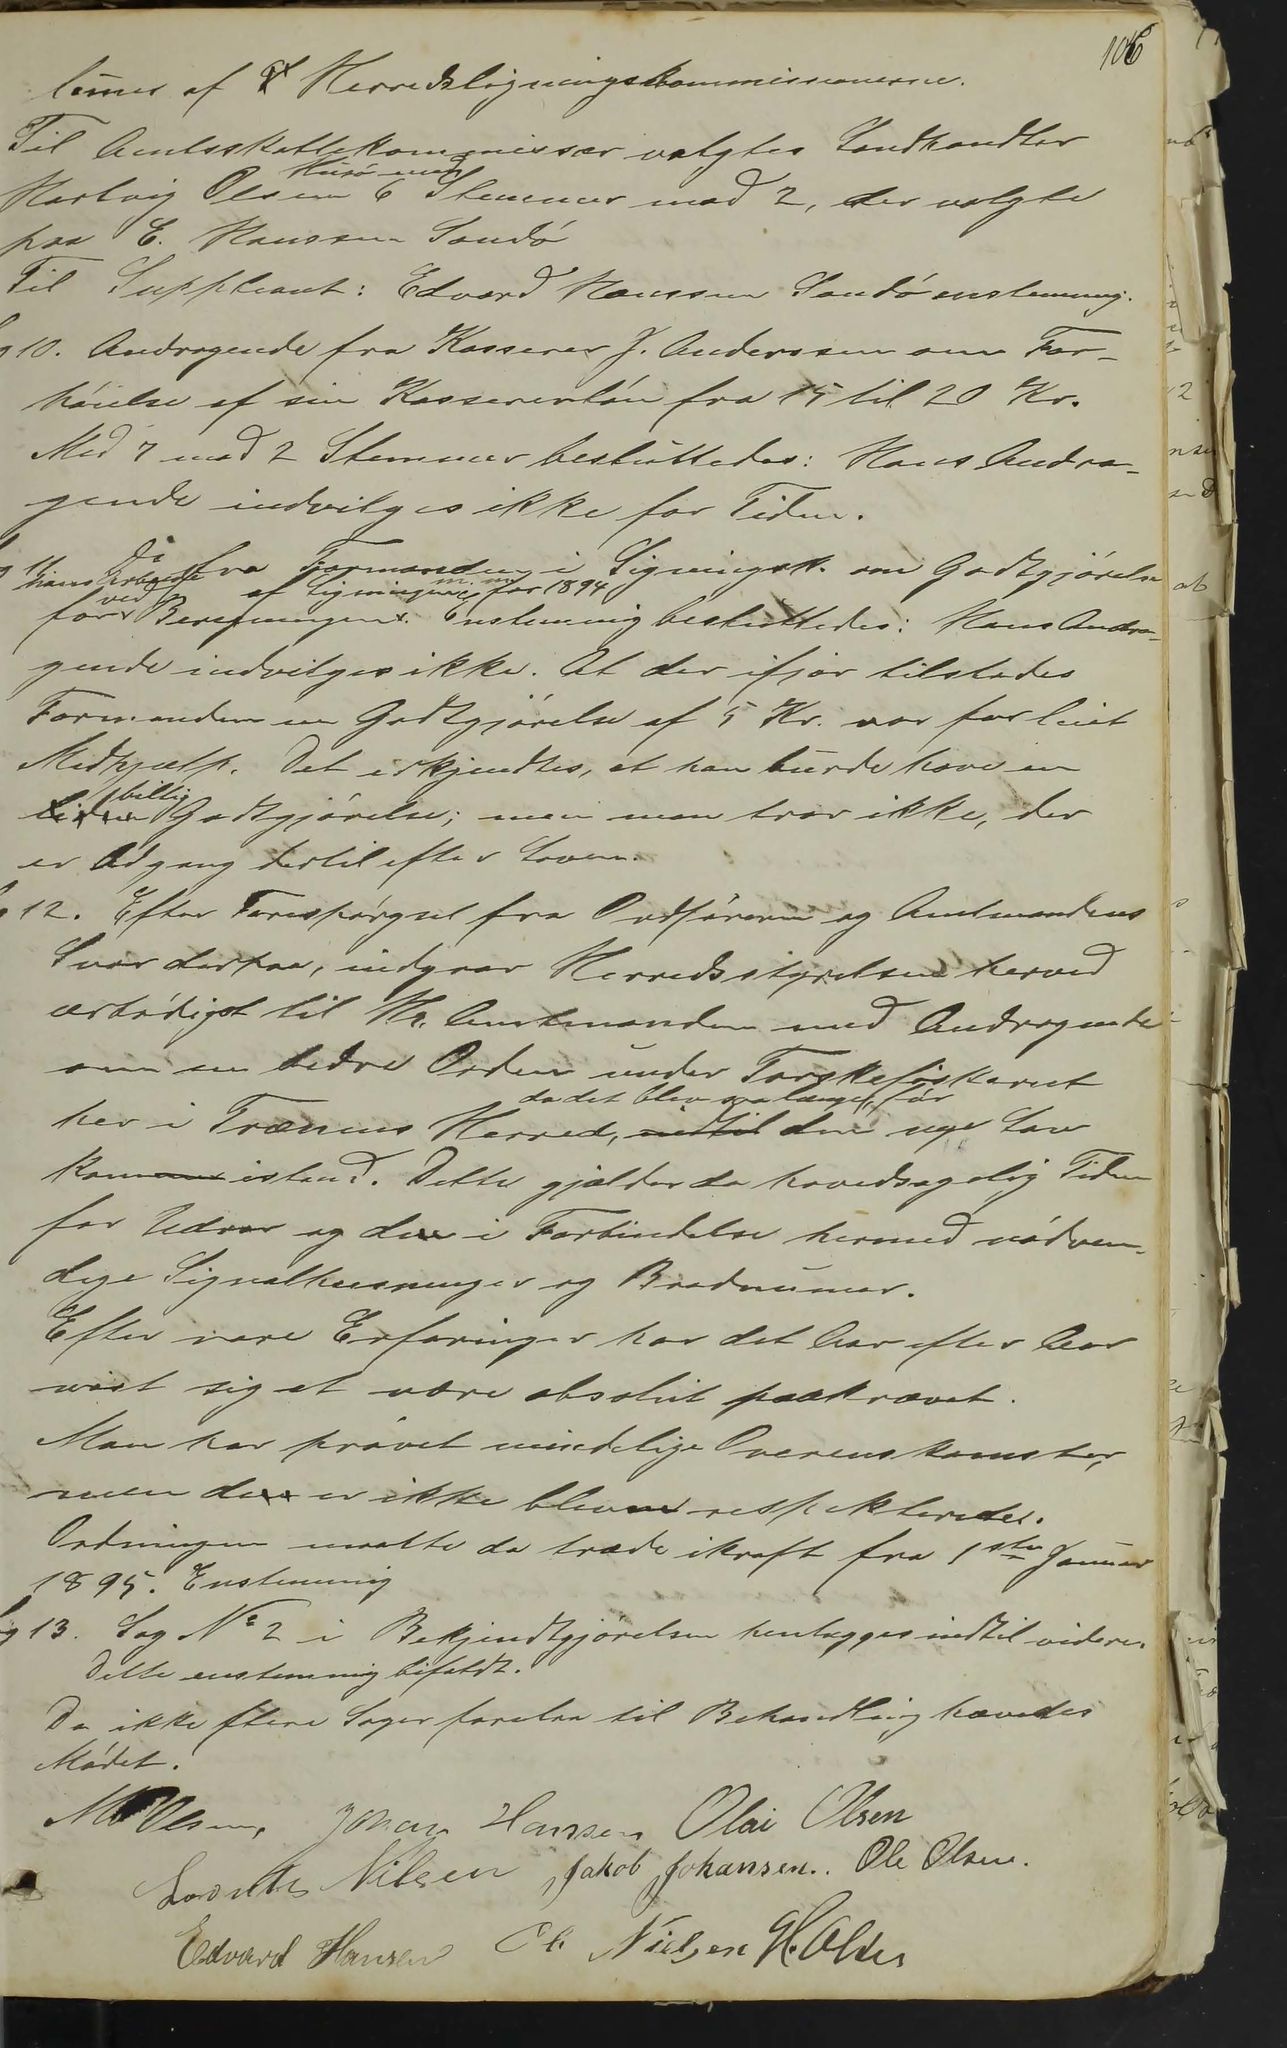 106
lemer af Herredsligningskommissionerne.
Til Amtsskattekommissær valgtes Landhandler
Husö med
Hartvig Olsen 6 Stemmer mod 2, der valgte
paa E. Hanssen Sandö
Til Suppleant: Edvard Hanssen Sandö enstemmig.
Sag 10. Andragende fra Kasserer J. Anderssen om For-
höielse af sin Kassererlön fra 15 til 20 Kr.
Med 7 mod 2 Stemmer besluttedes: Hans Andra-
gende indvilges ikke for Tiden.
11 Do fra Formanden i Ligningsk. om Godtgjörelse
hans Arbeide ved af Ligningen m. m. for 1894
for Beregningen. Enstemmig besluttedes: Hans Andra-
gende indvilges ikke. At der ifjor tilstodes
Formanden en Godtgjörelse af 5 Kr. var for leiet
Medhjælp. Det erkjendtes, at han burde have en
billig
liden Godtgjörelse; men man tror ikke, der
er Adgang dertil efter Loven.
12. Efter Forespörgsel fra Ordföreren og Amtmandens
Svar derpaa, indgaar Herredsstyrelsen herved
ærbödigst til Hr. Amtmanden med Andragende
om en bedre Orden under Torskefiskeriet
da det blev saalænge, för
her i Trænens Herred, indtil den nye Lov
kommer istand. Dette gjælder da hovedsagelig Tiden
for Udror og de i Forbindelse hermed nödven-
dige Signalheisninger og Baadnumer.
Efter vore Erfaringer har det Aar efter Aar
vist sig at være absolut paakrævet.
Man har prövet mindelige Overenskomster,
men de er ikke bleven respekterede.
Ordningen maatte da træde ikraft fra 1ste Januar
1895. Enstemmig
Sag 13. Sag No 2 i Bekjendtgjörelsen henlægges indtil videre.
Dette enstemmig bifaldt.
Da ikke flere Sager forelaa til Behandling hævedes
Mödet.
Olsen, Johan Hanssen Olai Olsen
Nilsen Jakob Johansen. Ole Olsen.
Edvard Hansen Ole Nielsen H. Olsen